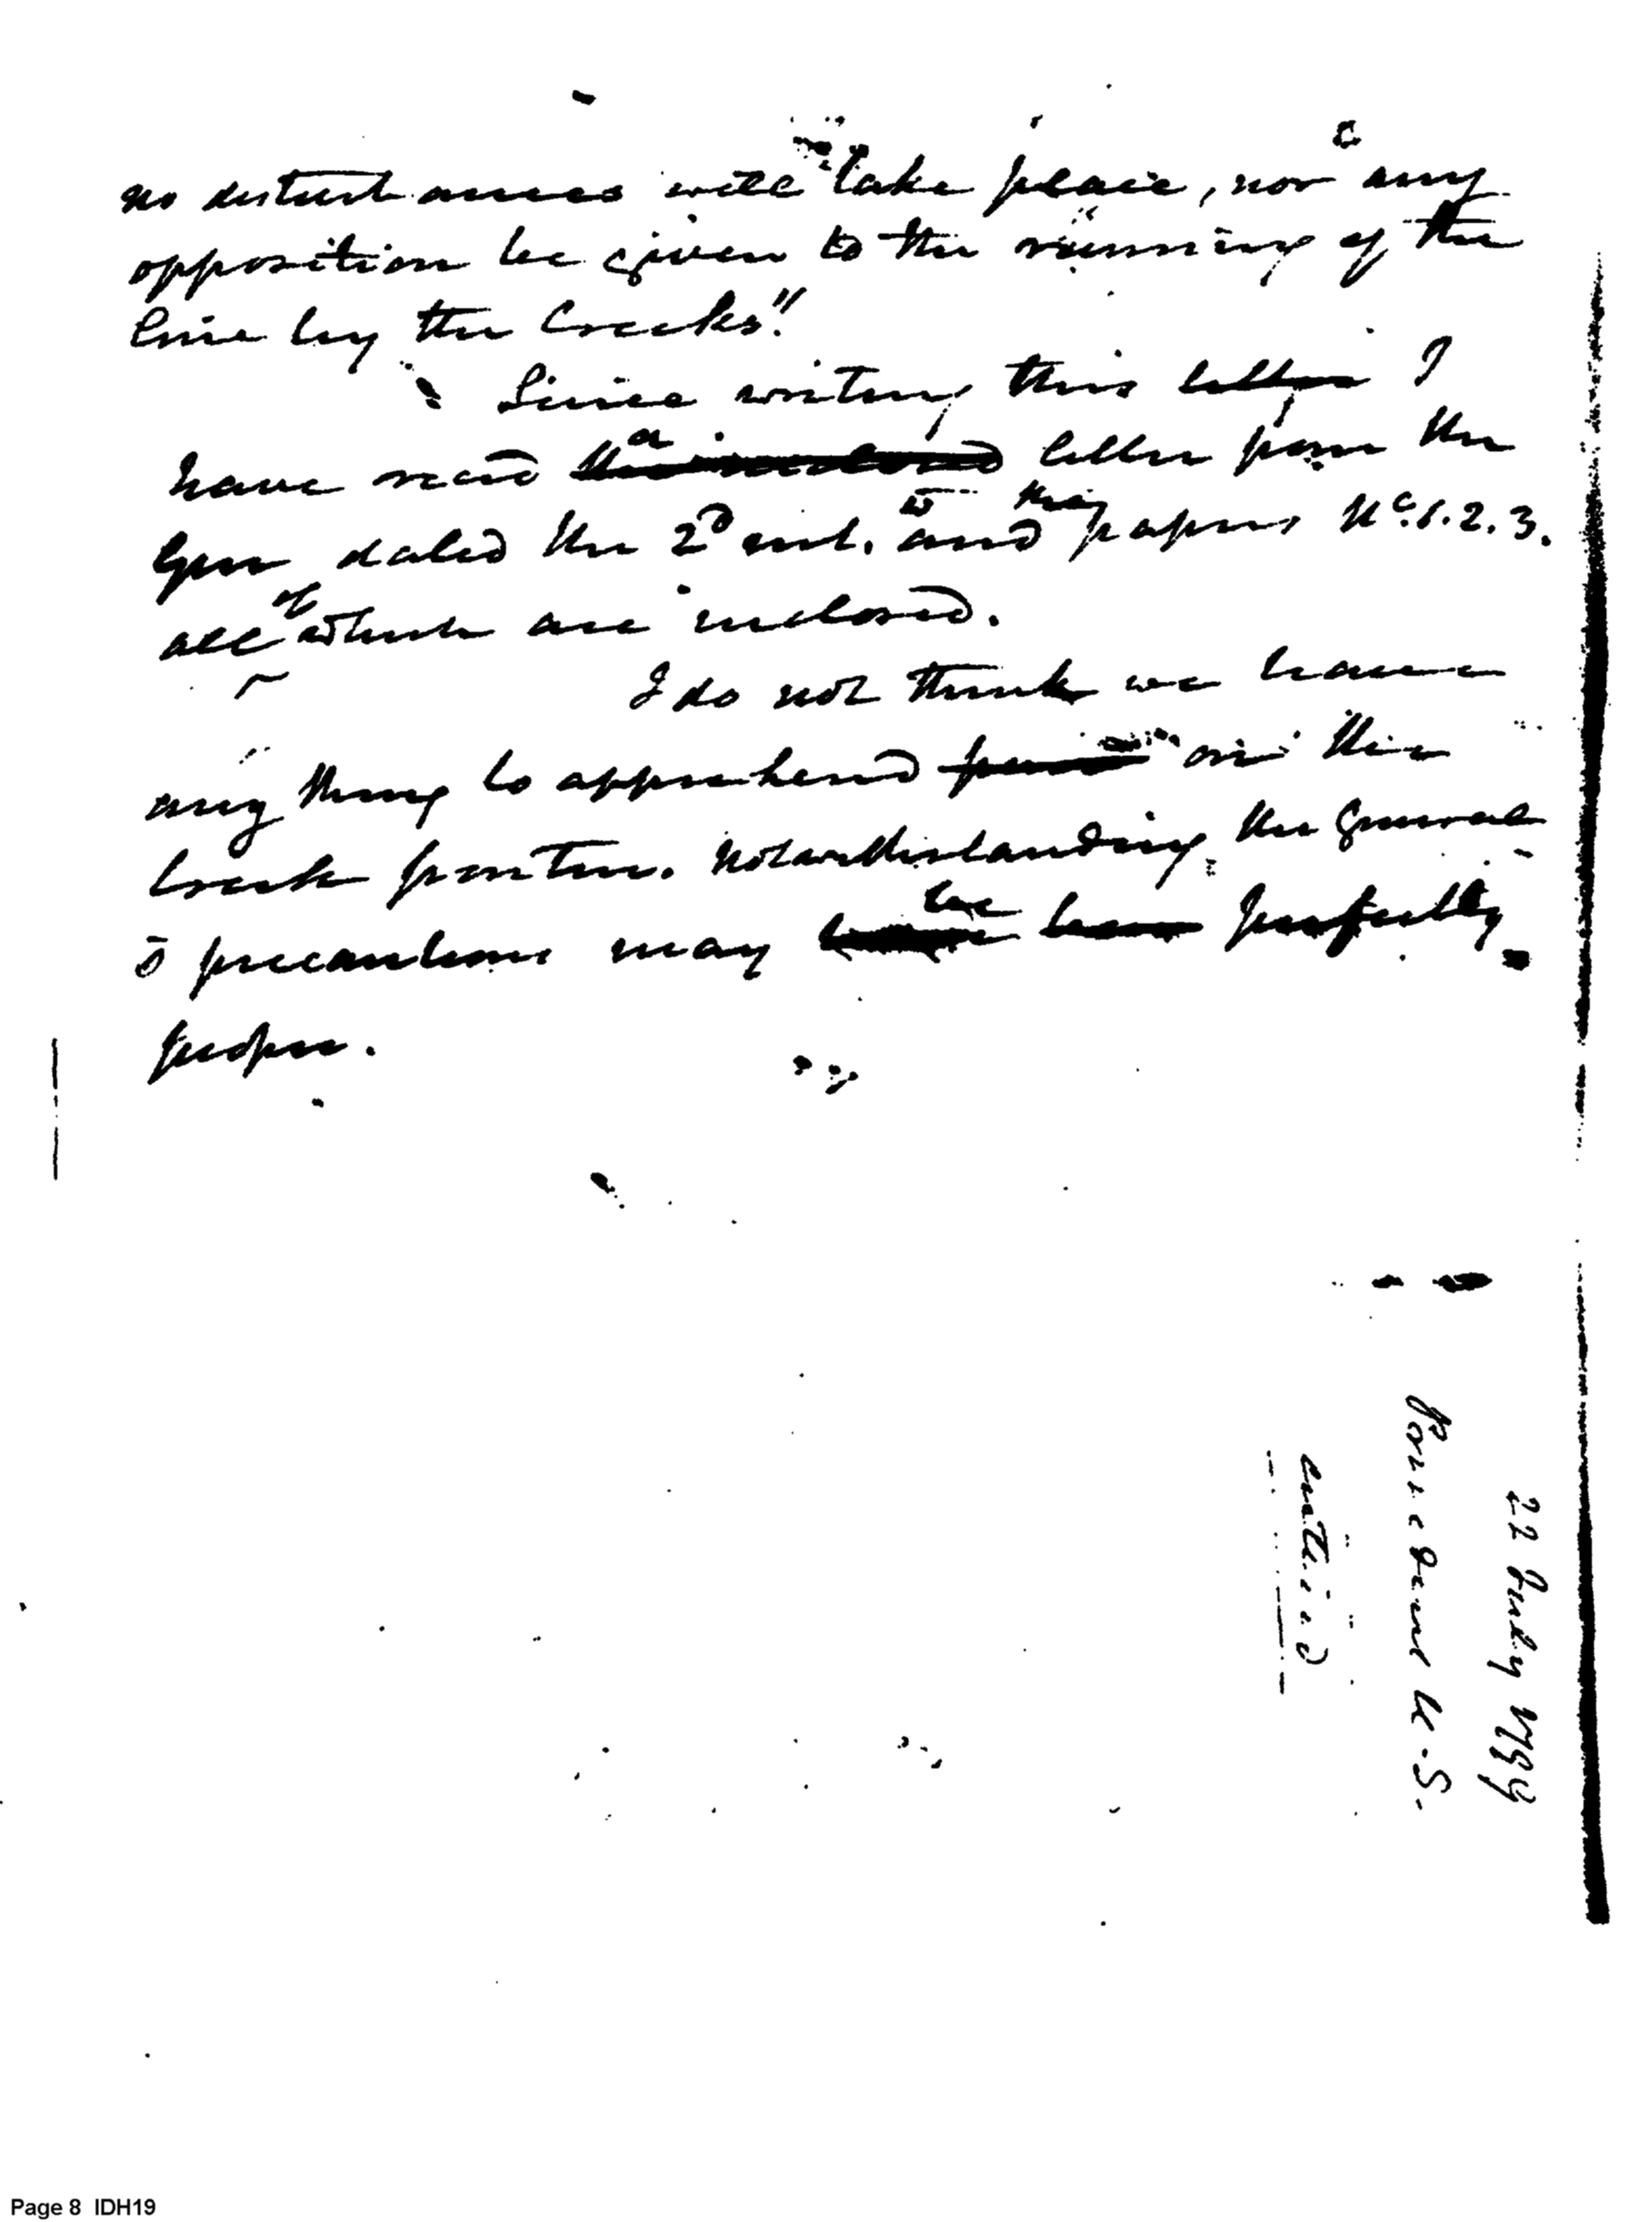 no disturbances will take place, nor any
opposition be given to the running of the
line by the Creeks."
Since writing this letter I
have recd a letter from the
Govr dated the 2d and papers No. 1. 2. 3.
all of which are inclosed.
I do not think we have
any thing to apprehend on the
Creek frontier. Notwithstanding, the general
s precautions may be perfectly
proper.
22 July 1799
K.S.
Page 8 IDH19